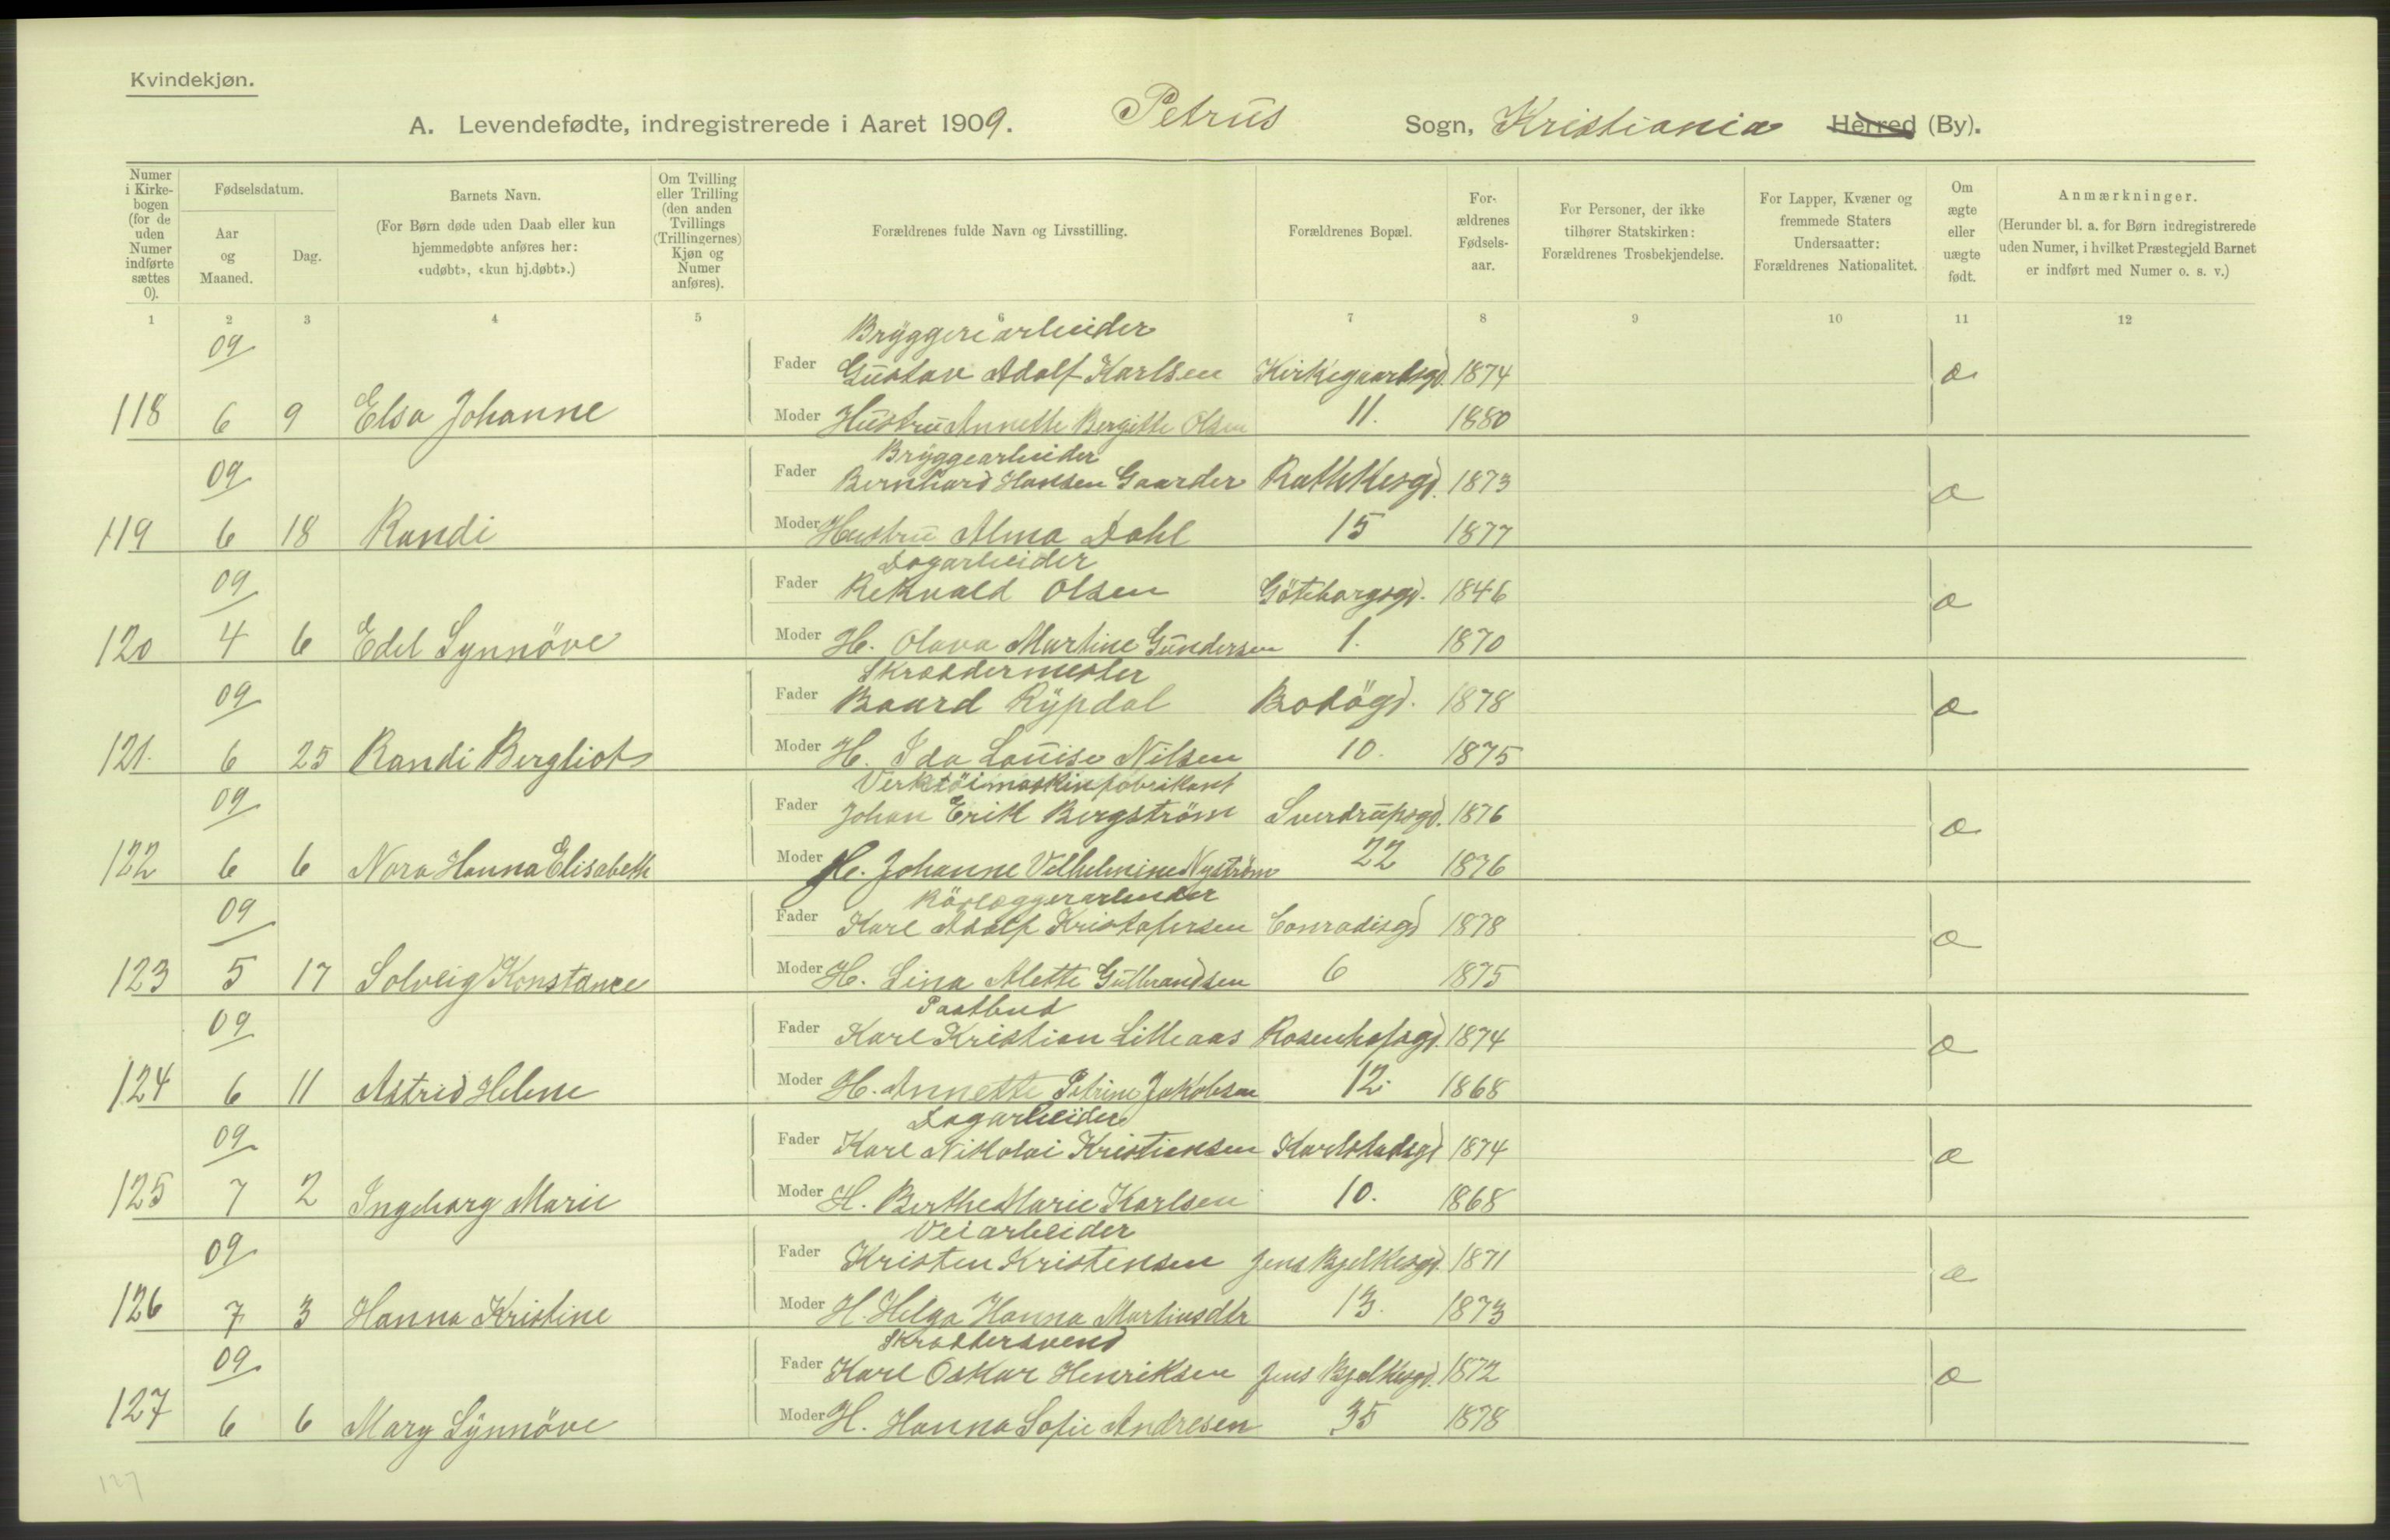 Kvindekjøn.
A. Levendefødte, indregistrerede i Aaret 1909. Petrus Sogn, Kristiania Herred (By).
Numer i Kirkebogen (for de uden Numer indførte sættes 0).
Fødselsdatum.
Aar og Maaned.
Dag.
Barnets Navn.
(For Børn døde uden Daab eller kun hjemmedøbte anføres her: «udøbt», «kun hj.døbt».)
Om Tvilling eller Trilling (den anden Tvillings (Trillingernes) Kjøn og Numer anføres).
Forældrenes fulde Navn og Livsstilling.
Forældrenes Bopæl.
Forældrenes Fødselsaar.
For Personer, der ikke tilhører Statskirken: Forældrenes Trosbekjendelse.
For Lapper, Kvæner og fremmede Staters Undersaatter: Forældrenes Nationalitet.
Om ægte eller uægte født.
Anmærkninger.
(Herunder bl. a. for Børn indregistrerede uden Numer, i hvilket Præstegjeld Barnet er indført med Numer o. s. v.)
1 2 3 4 5 6 7 8 9 10 11 12
09 Bryggeriarbeider
Fader Gustav Adolf Karlsen Kirkegaardsgd. 1874 æ
118 6 9 Elsa Johanne Moder Hustru Annette Bergitte Olsen 11. 1880
09 Bryggearbeider
Fader Bernhard Hansen Gaarder Rathkesgd. 1873 æ
119 6 18 Randi Moder Hustru Alma Dahl 15 1877
09 Dagarbeider
Fader Reknald Olsen Göteborgsgd. 1846 æ
120 4 6 Edel Synnöve Moder H. Olava Martine Gundersen 1. 1870
09 Skræddermester
Fader Baard Rypdal Bodögd. 1878 æ
121. 6 25 Randi Bergliot Moder H. Ida Louise Nilsen 10. 1875
09 Verktöimaskinfabrikant
Fader Johan Erik Bergström Sverdrupsgd. 1876 æ
122 6 6 Nora Hanna Elisabeth Moder H. Johanne Vilhelmine Nyström 22 1876
09 Rörlæggerarbeider
Fader Karl Adolf Kristofersen Conradisgd 1878 æ
123 5 17 Solveig Konstance Moder H. Lina Alette Gulbrandsen 6 1875
09 Postbud
Fader Karl Kristian Lilleaas Rosenhofsgd. 1874 æ
124 6 11 Astrid Helene Moder H. Annette Petrine Jakobsen 12. 1868
09 Dagarbeider
Fader Karl Nikolai Kristiansen Karlstadsgd 1874 æ
125 7 2 Ingeborg Marie Moder H. Berthe Marie Karlsen 10. 1868
09 Veiarbeider
Fader Kristen Kristensen Jens Bjelkesgd. 1871 æ
126 7 3 Hanna Kristine Moder H. Helga Hanna Martinsdtr 13. 1873
09 Skræddersvend
Fader Karl Oskar Henriksen Jens Bjelkesgd. 1872 æ
127 6 6 Mary Synnöve Moder H. Hanna Sofie Andresen 35 1878
127